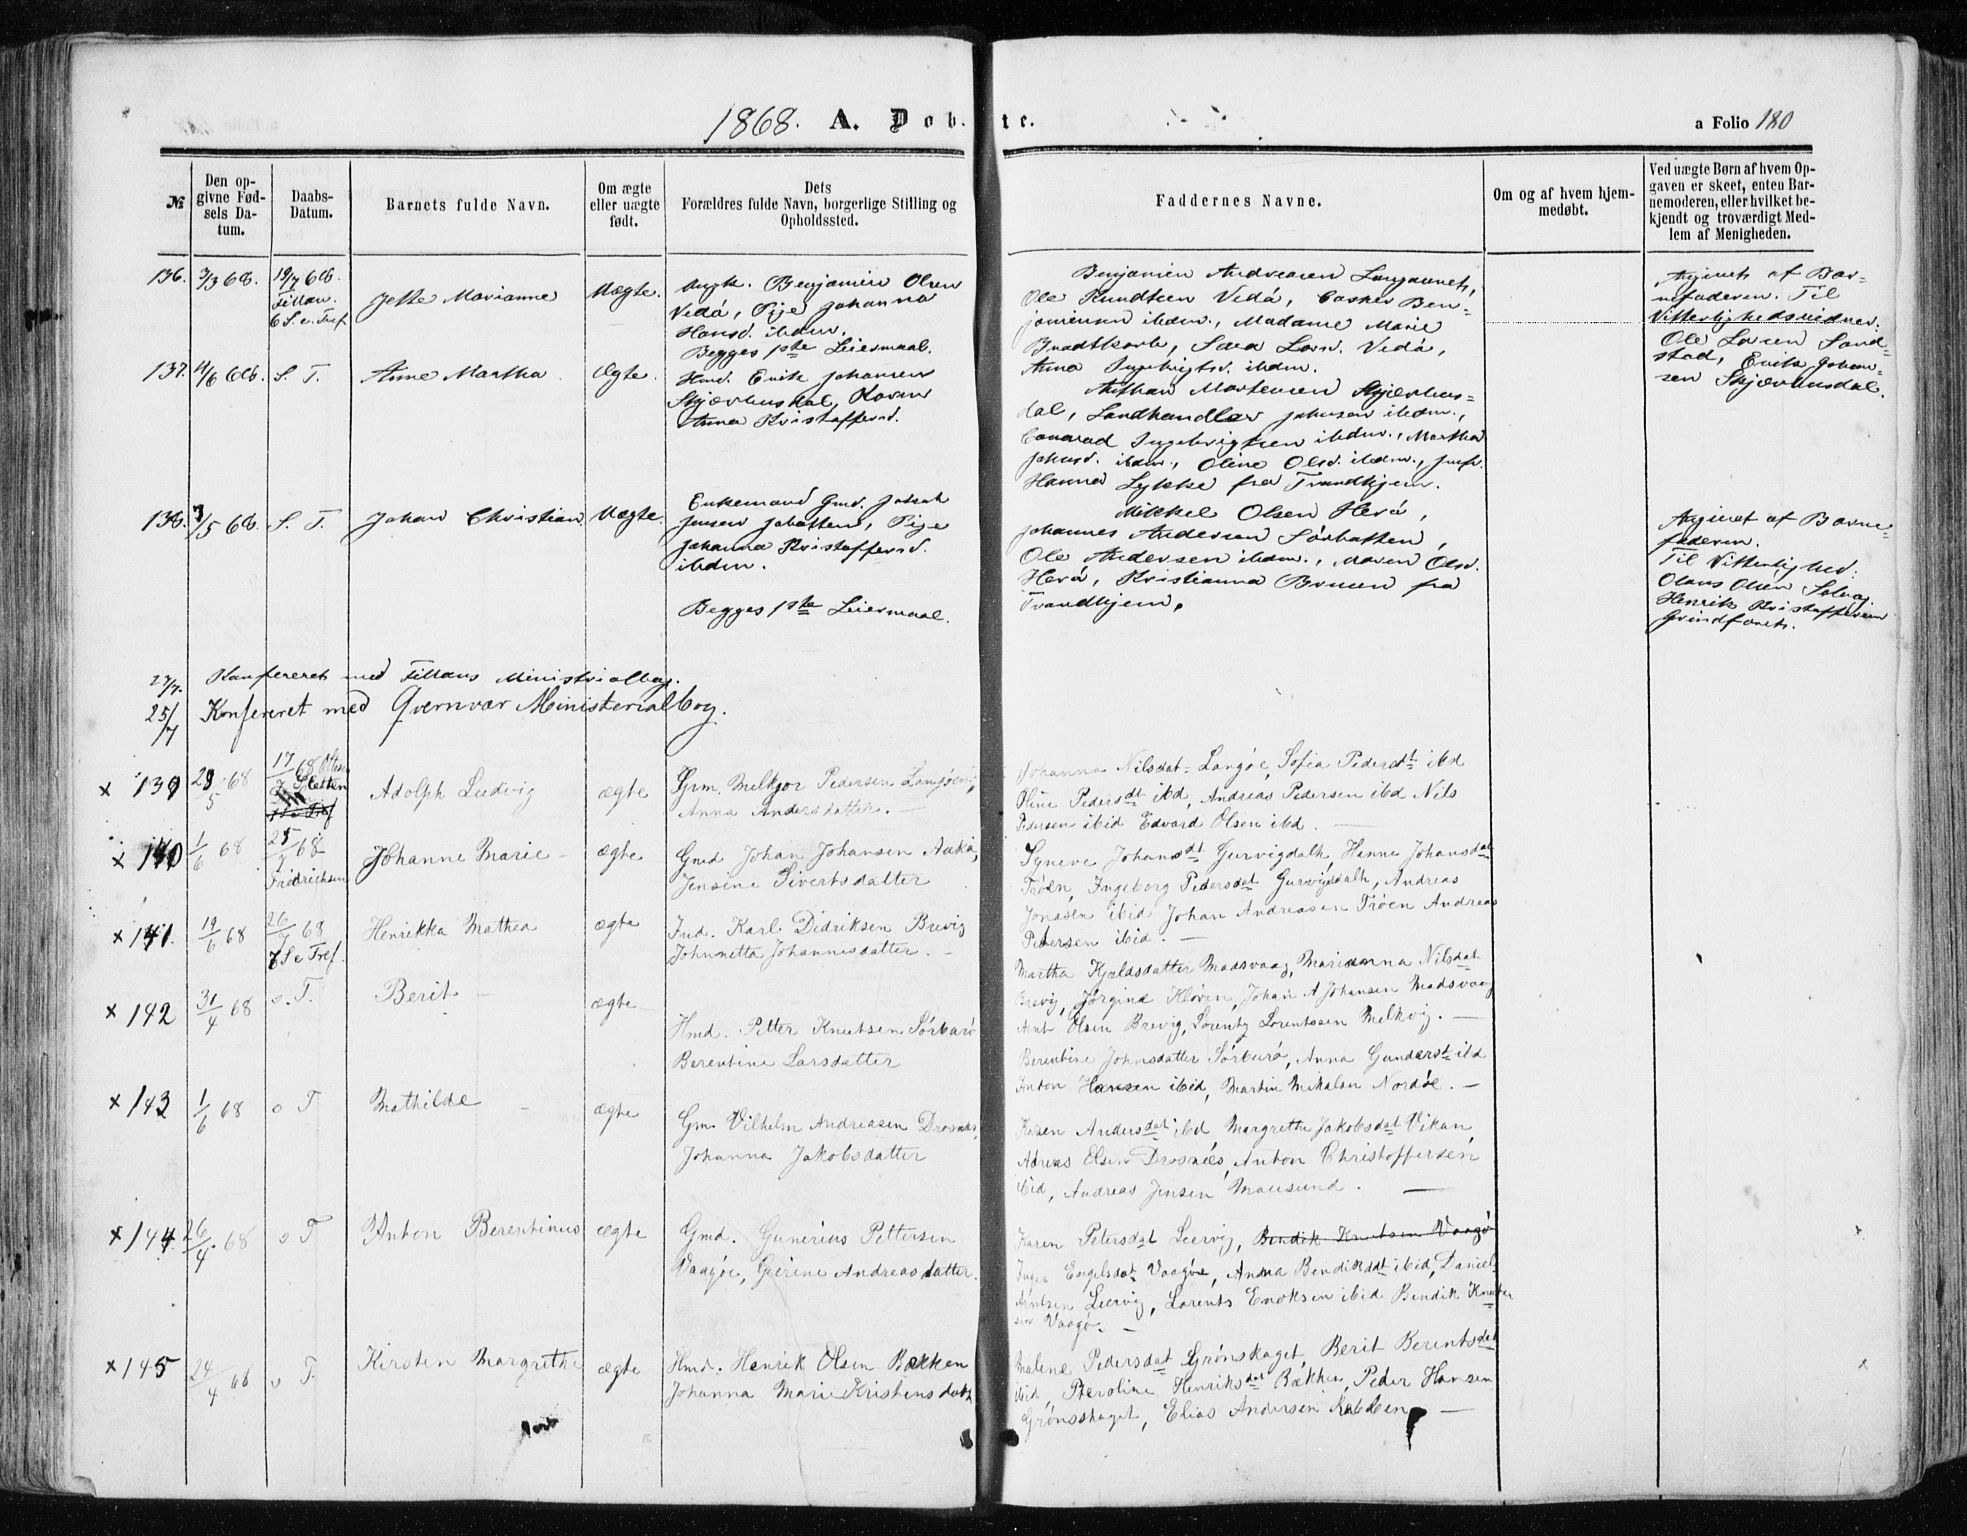 1868. A. Døbte.
a Folio 180
№
Den opgivne Fødsels Datum.
Daabs-Datum.
Barnets fulde Navn.
Om ægte eller uægte født.
Dets Forældres fulde Navn, borgerlige Stilling og Opholdssted.
Faddernes Navne.
Om og af hvem hjemmedøbt.
Ved uægte Børn af hvem Opgaven er skeet, enten Barnemoderen, eller hvilket bekjendt og troværdigt Medlem af Menigheden.
136. 3/3 68. 19/7 68. Fillan. 6 S. e. Tref. Jette Marianne Uægte.
Ungk. Benjamin Olsen
Vedø, Pige Johanna
Hansd. ibdm.
Begges 1ste Leiermaal.
Benjamin Andreasen Langaunet,
Ole Knudtsen Vedø, Casper Ben-
jaminsen ibdm., Madame Marie
Brodtkorb, Sara Larsd. Vedø,
Anna Ingebrigtsd. ibdm.
Angivet af Bar-
nefaderen. Til
Vitterlighedsvidner:
Ole Larsen Sand-
stad, Erik Johan-
sen Skjærhusdal.
137. 4/6 68. S. T. Anne Martha Ægte.
Hmd. Erik Johansen
Skjærhusdal, Karen
Anna Kristoffersd.
Arthan Mortensen Skjærhus-
dal, Landhandler Johnsen ibdm.,
Conrad Ingebrigtsen ibdm., Martha
Johnsd. ibdm., Oline Olsd. ibdm., Jmfr.
Hanna Lykke fra Trondhjem.
138. 7/5 68. S. T. Johan Christian Uægte.
Enkemand Gmd. Johan
Jensen Jøbotten, Pige
Johanna Kristoffersd.
ibdm.
Begges 1ste Leiermaal.
Mikkel Olsen Herø,
Johannes Andersen Sørhatten,
Ole Andersen ibdm., Maren Olsd.
Herø, Kristianna Bruun fra
Trondhjem.
Angivet af Barne-
faderen.
Til Vitterlighed:
Olaus Olsen
Henrik Kristoffersen
Grindfaret.
27/7. Konfereret med Fillans Ministrialbog.
25/7 Konfereret med Qvernvær Ministerialbog.
x 139 29/5 68 17/7 68 Adolph Ludvig ægte
Grm. Melkjor Pedersen Langøen,
Anna Andersdatter. —
Johanna Nilsdat Langøe, Sofia Pedersdt ibd
Oline Pedersdt ibd, Andreas Pedersen ibd Nils
Pedersen ibid Edvard Olsen ibd. —
x 140 1/6 68 25/7 68 Fredrichsen Johanne Marie – ægte
Gmd Johan Johansen Aukø,
Jensine Sivertsdatter
Syneve Johansdt Gurvigdalh, Hanne Johansdat
Trøen, Ingeborg Pedersdat Gurvigdalh, Andreas
Jonasen ibid Johan Andreasen Trøen Andreas
Pedersen ibid. —
x 141. 19/6 68 26/7 68 7 S e Tref. Henrikka Mathea ægte
Ind. Karl Didriksen Brevig
Johnnetta Johannesdatter. –
Martha Kjeldsdatter Madsvaag, Marianna Nilsdat
Brevig, Jørgine Kløven, Johan A Johansen Madsvaag
Arnt Olsen Brevig, Lorentz Lorentssen Melkvig. —
x 142 31/4 68 s. T. Berit – ægte
Hmd. Petter Knutsen Sørburø
Berentine Larsdatter
Berentine Johnsdatter Sørburø, Anna Gundersdt ibd
Anton Hansen ibid, Martin Mikalsen Nordøe. —
x 143 1/6 68 s T Mathilde – ægte
Gm. Vilhelm Andreasen Drosnæs,
Johanna Jakobsdatter
Karen Andersdat ibd Margrethe Jakobsdat Vikan,
Adreas Olsen Drosnæs, Anton Christoffersen
ibid, Andreas Jensen Mausund. —
x 144. 26/4 68 s T Anton Berentinus ægte
Gmd. Gunerius Pettersen
Vaagøe, Gjerine Andreasdatter.
Karen Petersdat Leervig, Bendik Knutsen Vaagø
Inger Engelsdat Vaagøe, Anna Bendiksdt ibid, Daniel
Arntsen Leervig, Lorents Enoksen ibid Bendik Knut-
sen Vaagø. –
x 145 24/4 68 s T. Kirsten Margrethe ægte
Hmd. Henrik Olsen Bækken
Johanna Marie Kristensdatt
Malene Pedersdat Grønskaget Berit Berentsdat
ibid, Peroline Henriksdat Bækken, Peder Hansen
Grønsskaget, Elias Andersen —